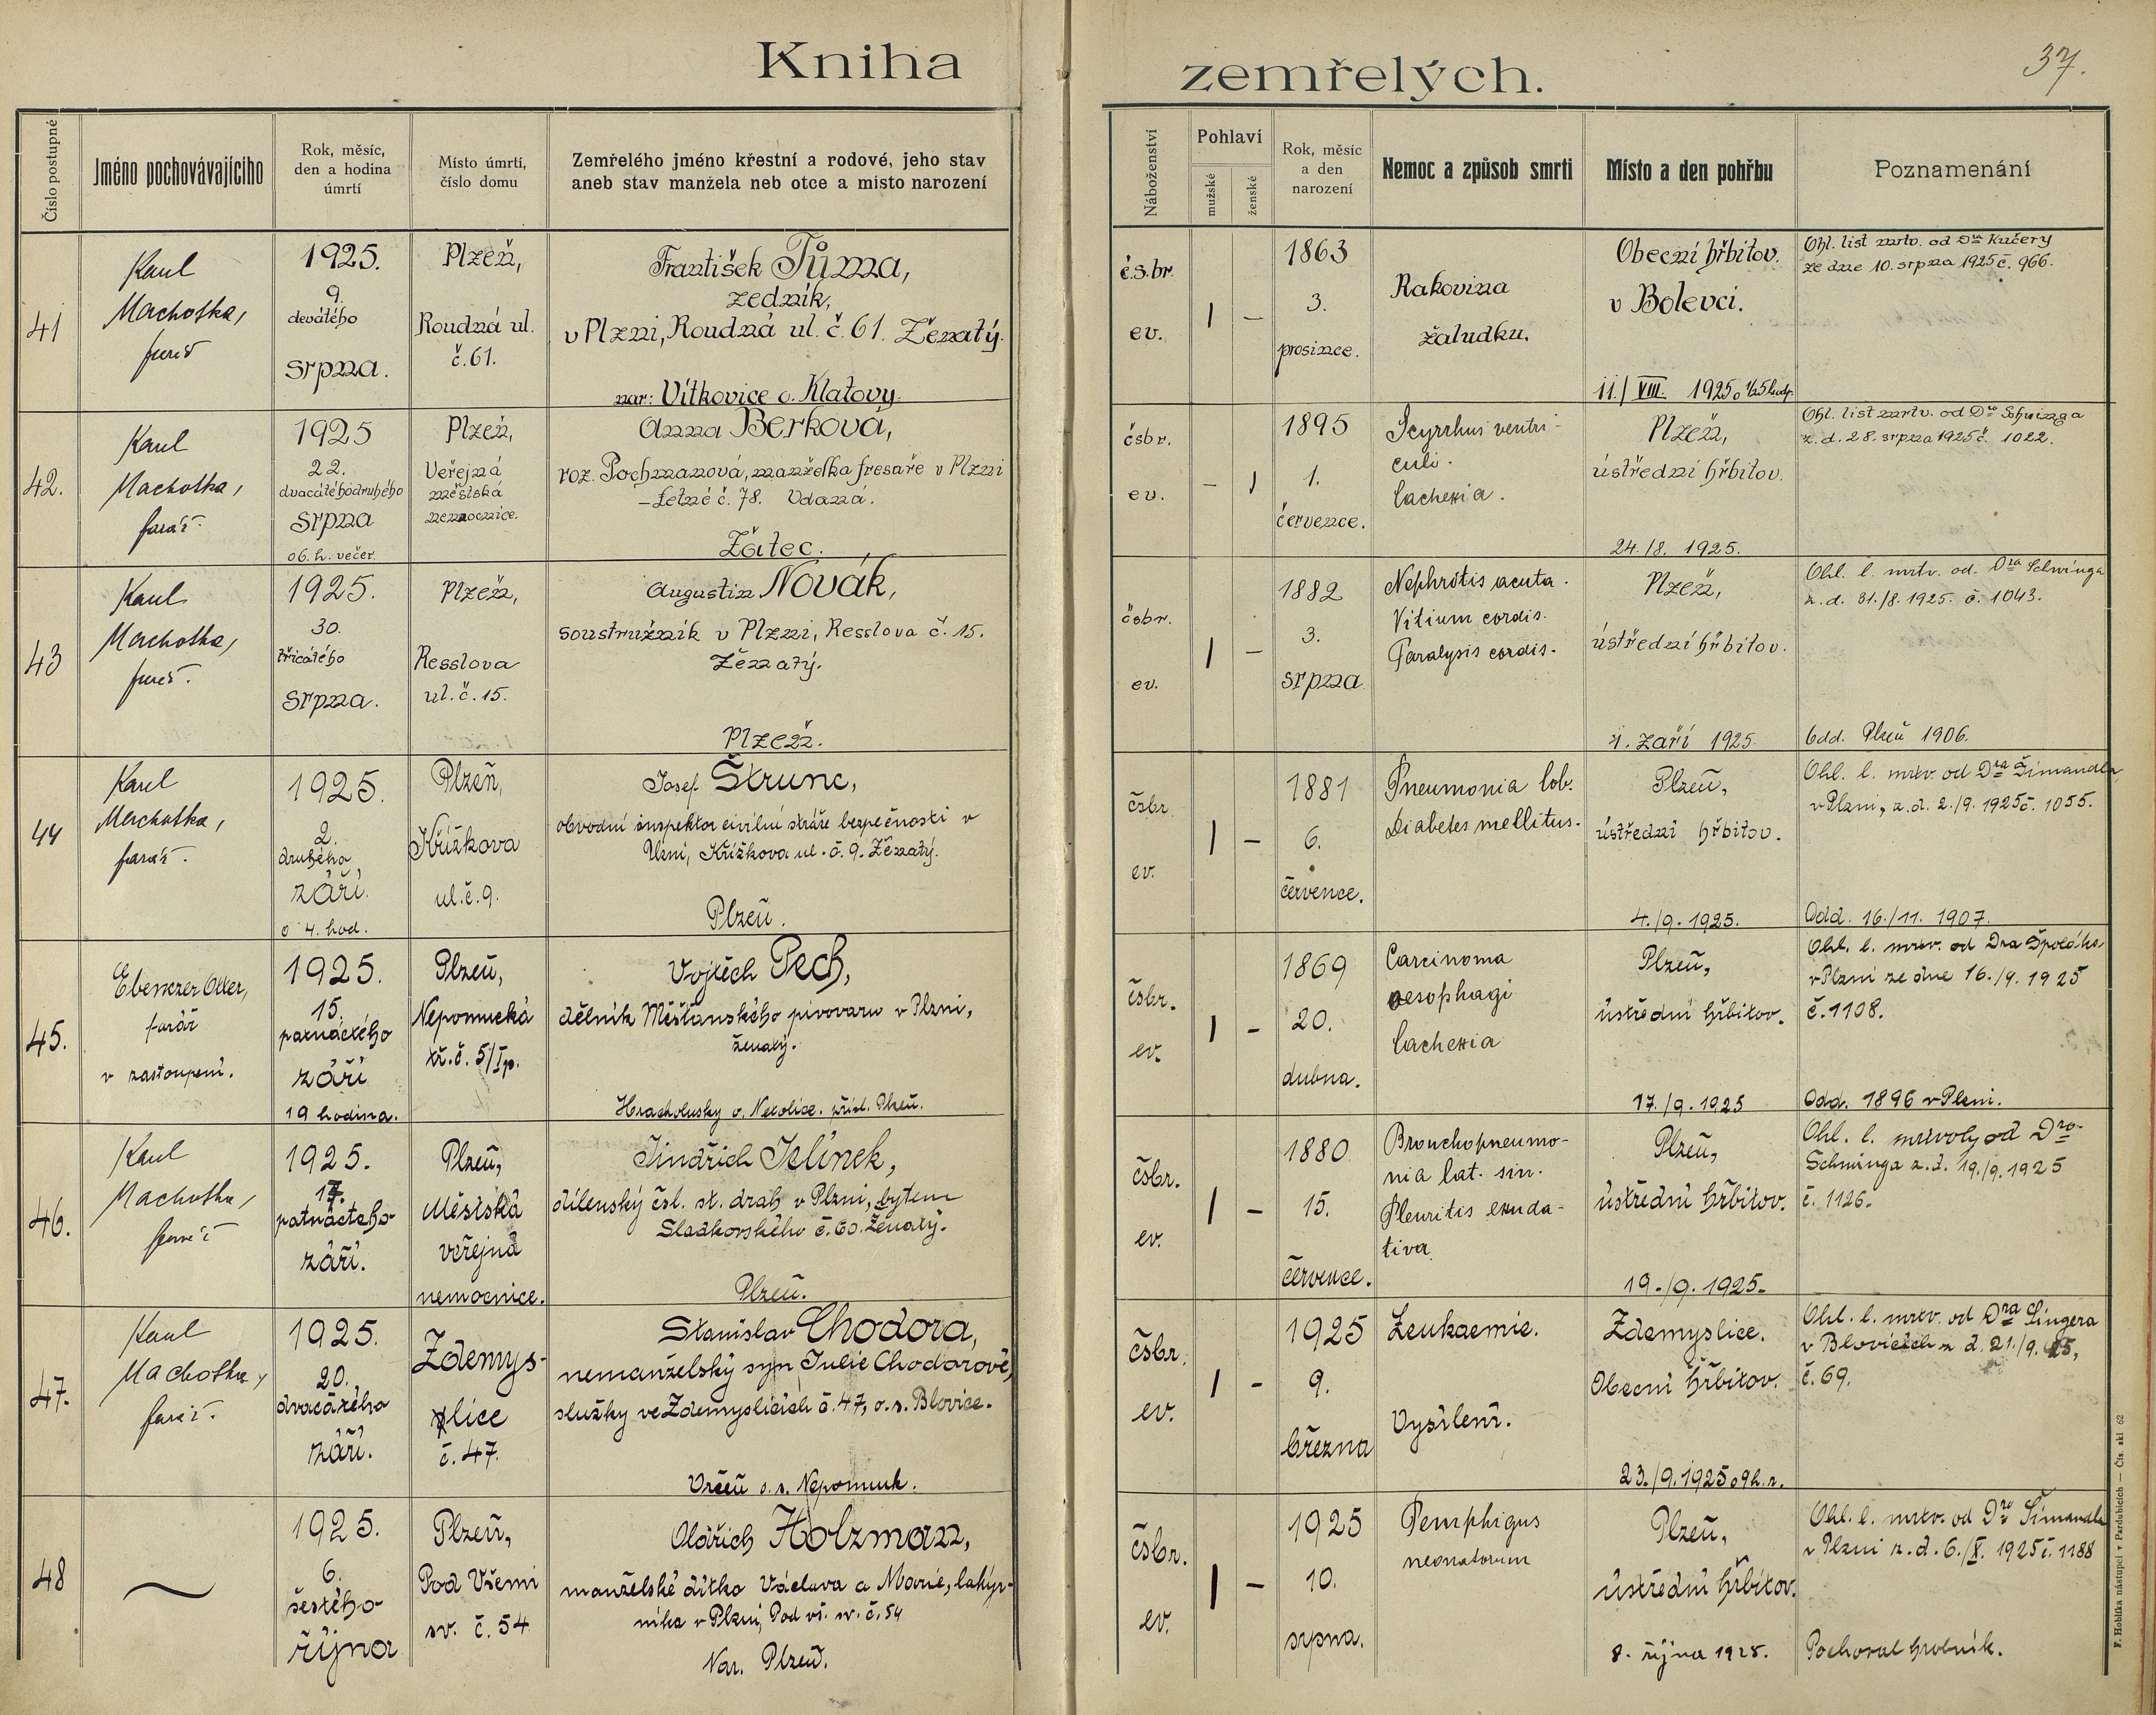 Kniha zemřelých.
37.
Číslo postupné
Jméno pochovávajícího
Rok, měsíc,
den a hodina
úmrtí
Místo úmrtí,
číslo domu
Zemřelého jméno křestní a rodové, jeho stav
aneb stav manžela neb otce a místo narození
Náboženství
Pohlaví
mužské
ženské
Rok, měsíc
a den
narození
Nemoc a způsob smrti
Místo a den pohřbu
Poznamenání
41
Karel
Machotka,
farář
1925.
9.
devátého
srpna.
Plzeň,
Roudná ul.
č. 61.
František Tůma,
zedník,
v Plzni, Roudná ul. č. 61. Ženatý.
nar: Vítkovice o. Klatovy.
č.s.br.
ev.
1 –
1863
3.
prosince.
Rakovina
žaludku.
Obecní hřbitov.
v Bolevci.
11./VIII. 1925 o 1/25 hodp.
Ohl. list mrtv. od Dra Kučery
ze dne 10. srpna 1925 č. 966.
42.
Karel
Machotka,
farář.
1925
22.
dvacátéhodruhého
srpna
o 6. h. večer.
Plzeň,
Veřejná
městská
nemocnice.
Anna Berková,
roz. Pochmanová, manželka fresaře v Plzni
– Letné č. 78. Vdaná.
Žatec.
čsbr.
ev.
– 1
1895
1.
července.
Scyrrhus ventri-
culi.
Cachexia.
Plzeň,
ústřední hřbitov.
24./8. 1925.
Ohl. list mrtv. od Dra Schwinga
z. d. 28. srpna 1925 č. 1022.
43
Karel
Machotka,
farář.
1925.
30.
třicátého
srpna.
Plzeň,
Resslova
ul. č. 15.
Augustin Novák,
soustružník v Plzni, Resslova č. 15.
Ženatý.
Plzeň.
čsbr.
ev.
1 –
1882
3.
srpna
Nephritis acuta.
Vitium cordis.
Paralysis cordis.
Plzeň,
ústřední hřbitov.
1. září 1925.
Ohl. l. mrtv. od. Dra Schwinga
z. d. 31./8. 1925. č. 1043.
Odd. Plzeň 1906.
44
Karel
Machotka,
farář.
1925.
2.
druhého
září.
o 4. hod.
Plzeň,
Křížkova
ul. č. 9.
Josef Štrunc,
obvodní inspektor civilní stráže bezpečnosti v
Plzni, Křížkova ul. č. 9. Ženatý.
Plzeň.
čsbr
ev.
1 –
1881
6.
července.
Pneumonia lob.
Diabetes mellitus.
Plzeň,
ústřední hřbitov.
4./9. 1925.
Ohl. l. mrtv. od Dra Šimandla
v Plzni, z. d. 2./9. 1925 č. 1055.
Odd. 16./11. 1907.
45.
Ebenezer Otter,
farář
v zastoupení.
1925.
15.
patnáctého
září
19 hodina.
Plzeň,
Nepomucká
tř. č. 5/I p.
Vojtěch Pech,
dělník Měšťanského pivovaru v Plzni,
ženatý.
Hracholusky o. Netolice. přísl. Plzeň.
čsbr.
ev.
1 –
1869
20.
dubna.
Carcinoma
oesophagi
Cachexia
Plzeň,
ústřední hřbitov.
17./9. 1925
Ohl. l. mrtv. od Dra
v Plzni ze dne 16./9. 1925
č. 1108.
Odd. 1896 v Plzni.
46.
Karel
Machotka,
farář
1925.
17.
patnáctého
září.
Plzeň,
Městská
veřejná
nemocnice.
Jindřich Jelínek,
dílenský čsl. st. drah v Plzni, bytem
Sladkovského č. 60. Ženatý.
Plzeň.
čsbr.
ev.
1 –
1880
15.
července.
Bronchopneumo-
nia lat. sin.
Pleuritis exuda-
tiva
Plzeň,
ústřední hřbitov.
19./9. 1925.
Ohl. l. mrtvoly od Dra
Schwinga z. d. 19./9. 1925
č. 1126.
47.
Karel
Machotka,
farář.
1925.
20.
dvacátého
září.
Zdemys-
lice
č. 47.
Stanislav Chodora,
nemanželský syn Julie Chodorové,
služky ve Zdemyslicích č. 47, o. s. Blovice.
Vrčeň o. s. Nepomuk.
čsbr.
ev.
1 –
1925
9.
března
Leukaemie.
Vysílení.
Zdemyslice.
Obecní hřbitov.
23./9. 1925 o 9 h. r.
Ohl. l. mrtv. od Dra Singera
v Blovicích z d. 21./9. 25,
č. 69.
48
1925.
6.
šestého
října
Plzeň,
Pod Všemi
sv. č. 54
Oldřich Holzman,
manželské dítko Václava a Marie, lakýr-
níka v Plzni, Pod vš. sv. č. 54
Nar. Plzeň.
čsbr.
ev.
1 –
1925
10.
srpna.
Pemphigus
neonatorum
Plzeň,
ústřední hřbitov.
8. října 1925.
Ohl. l. mrtv. od Dra Šimandla
v Plzni z. d. 6./X. 1925 č. 1188
Pochoval hrobník.
F. Hoblíka nástupci v Pardubicích — Čís. skl. 62